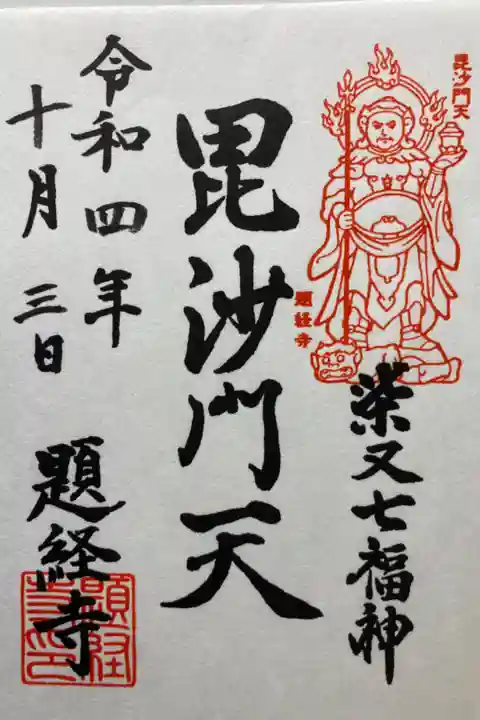 毘沙門天
題経寺
柴又七福神
毘沙門天
令和四年
十月三日
題経寺
題経